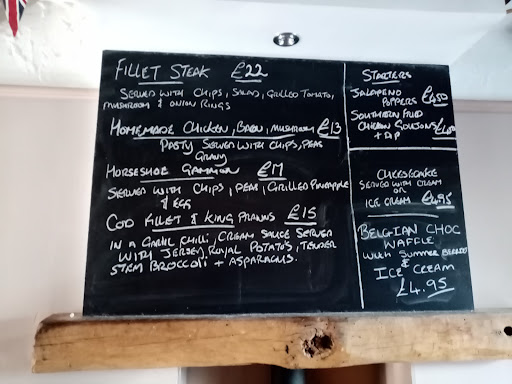 FILLET STEAK £22
SERVED WITH CHIPS, SALAD, GRILLED TOMATO,
MUSHROOM & ONION RINGS
HOMEMADE CHICKEN, BACON, MUSHROOM £13
PASTY SERVED WITH CHIPS, PEAS
GRAVY
HORSESHOE GAMMON
SERVED WITH CHIPS, PEAS, GRILLED PINEAPPLE
& EGG
COD FILLET & KING PRAWNS £15
IN A GARLIC CHILLI, CREAM SAUCE SERVED
WITH JERSEY ROYAL POTATO'S, TENDER
STEM BROCCOLI + ASPARAGUS.
STARTERS
JALAPENO
POPPERS
SOUTHERN FRIED
CHICKEN GOUJONS
+ DIP
CHEESECAKE
SERVED WITH CREAM
OR
ICE CREAM £4.95
BELGIAN CHOC
WAFFLE
WITH SUMMER BERRIES
&
ICE CREAM
£4.95